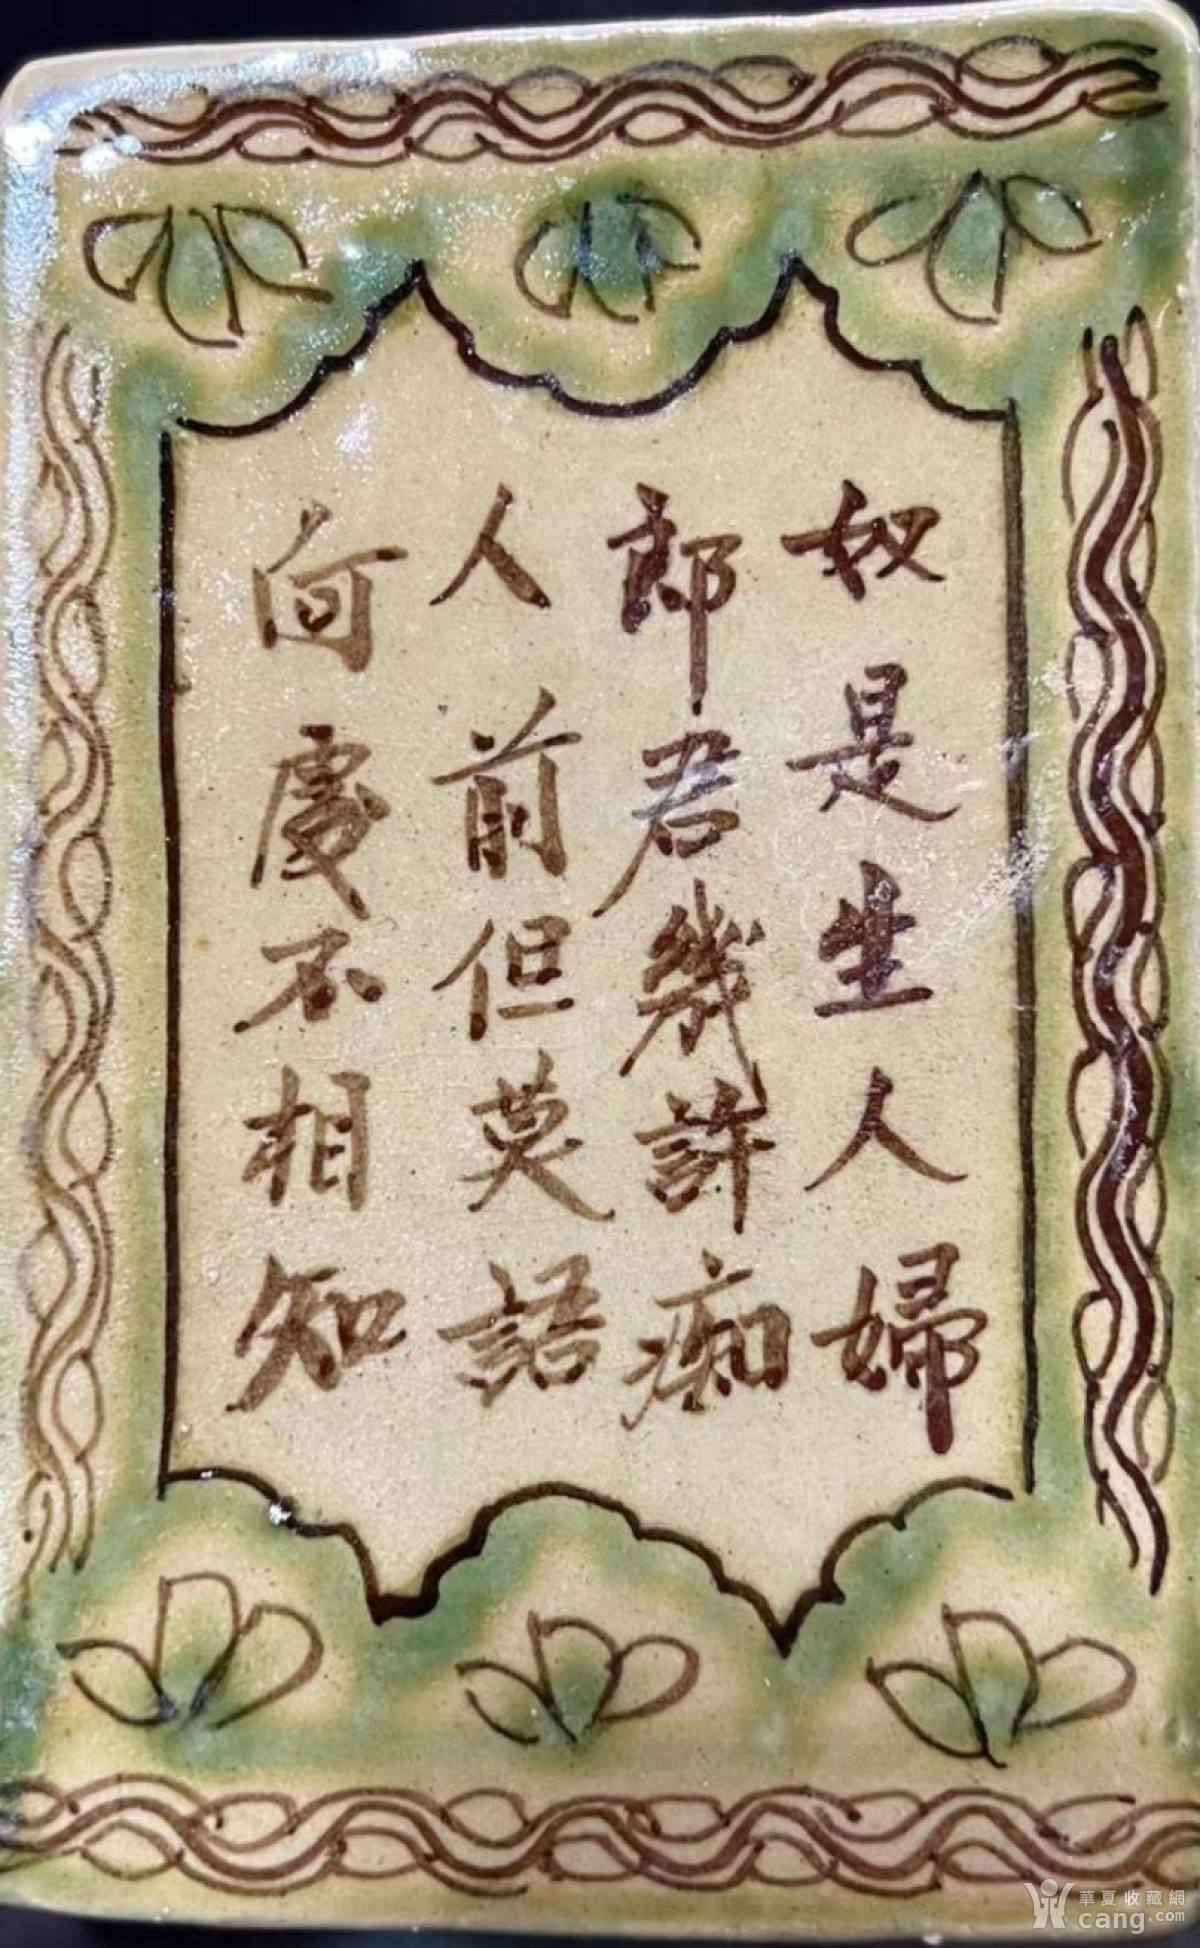 奴是生人婦
郎君幾許痴
人前但莫語
何處不相知
華夏收藏網
cang.com